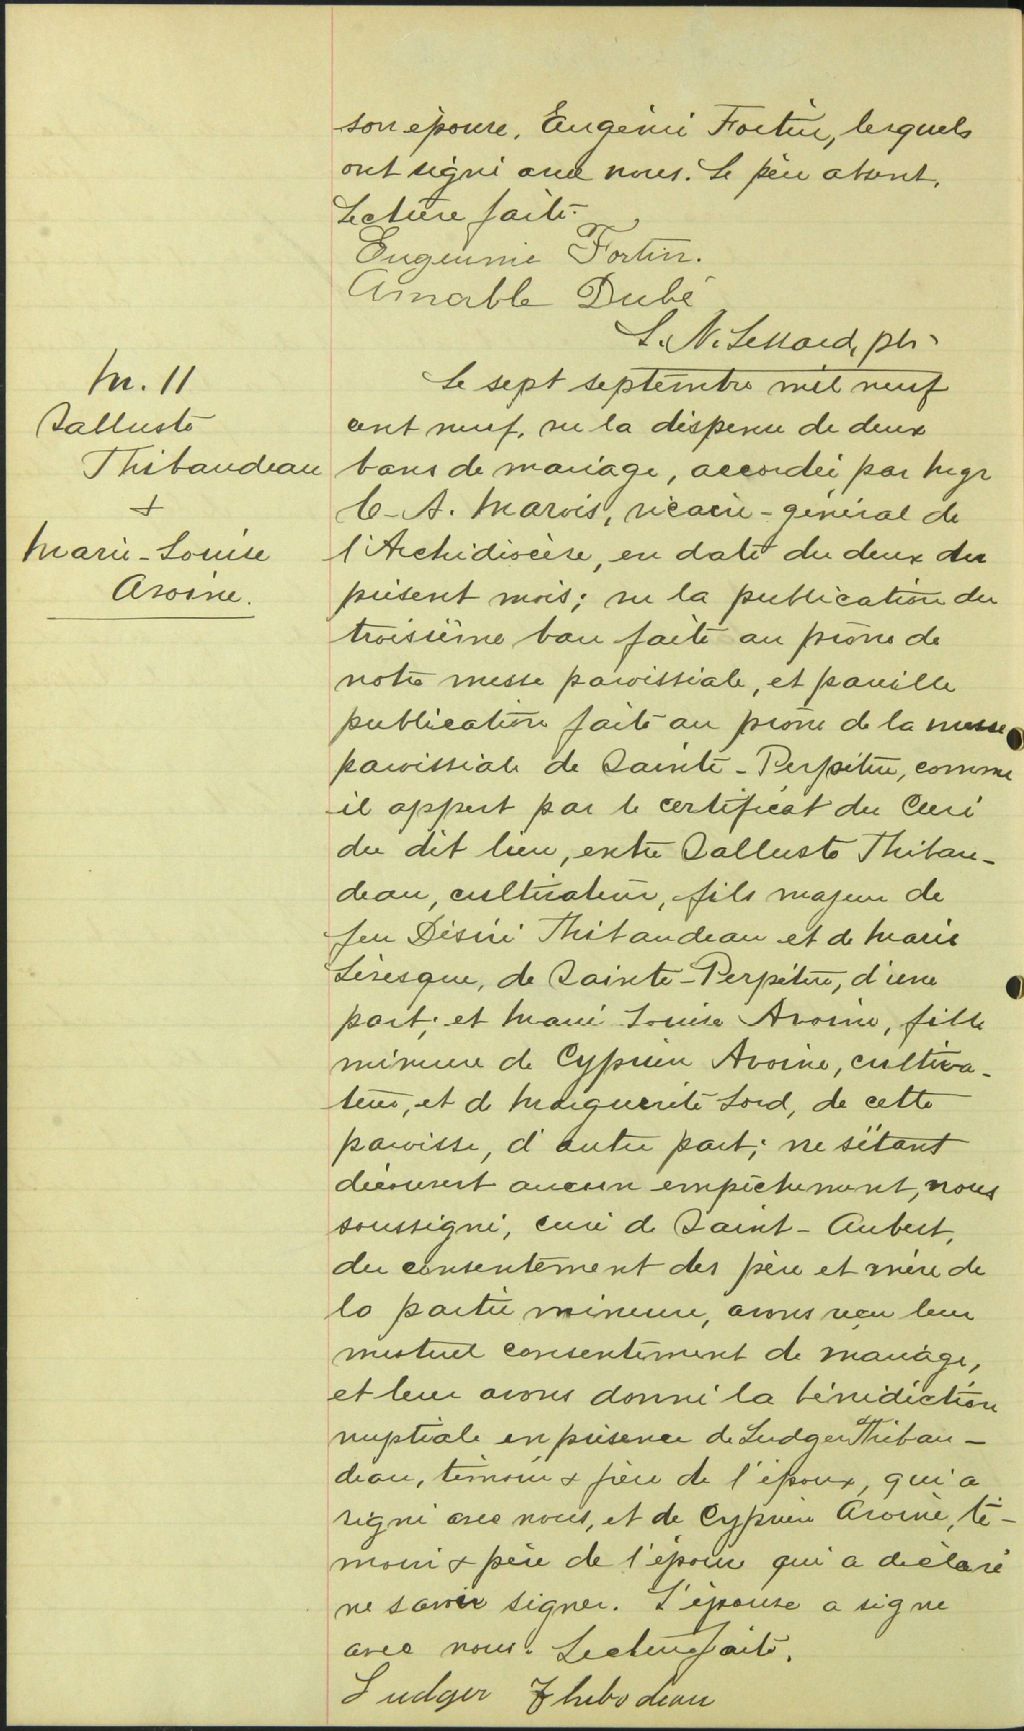 son épouse, Eugénie Fortin, lesquels
ont signé avec nous. Le père absent.
Lecture faite.
Eugeunie Fortin.
Amable Dubé
L. N. Lessard, ptr.
M. 11
Salluste
Thibaudeau
+
Marie-Louise
Avoine.
Le sept septembre mil neuf
cent neuf, vu la dispense de deux
bans de mariage, accordée par Mgr
C. A. Marois, vicaire-général de
l'Archidiocèse, en date du deux du
présent mois; vu la publication du
troisième ban faite au prône de
notre messe paroissiale, et pareille
publication faite au prône de la messe
paroissiale de Sainte-Perpétue, comme
il appert par le certificat du Curé
du dit lieu, entre Salluste Thibau-
deau, cultivateur, fils majeur de
feu Désiré Thibaudeau et de Marie
Lévesque, de Sainte-Perpétue, d'une
part; et Marie Louise Avoine, fille
mineure de Cyprien Avoine, cultiva-
teur, et de Marguerite Lord, de cette
paroisse, d'autre part; ne s'étant
découvert aucun empêchement, nous
soussigné, curé de Saint-Aubert,
du consentement des père et mère de
la partie mineure, avons reçu leur
mutuel consentement de mariage,
et leur avons donné la bénédiction
nuptiale en présence de Ludger Thibau-
deau, témoin & frère de l'époux, qui a
signé avec nous, et de Cyprien Avoine, té-
moin & père de l'épouse qui a déclaré
ne savoir signer. L'épouse a signé
avec nous. Lecture faite.
Ludger Thibodeau